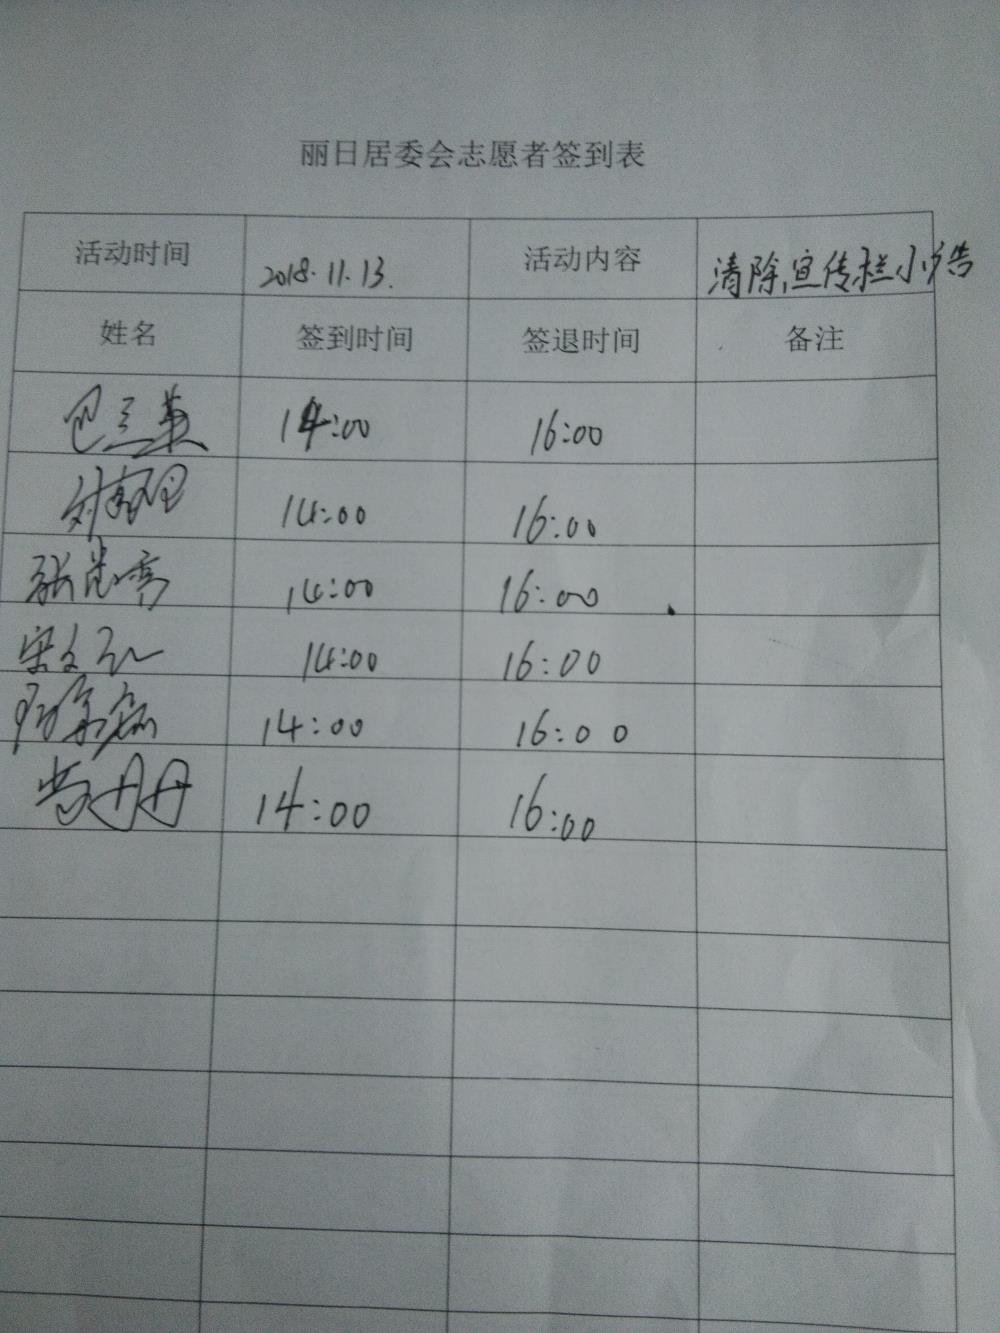 丽日居委会志愿者签到表
活动时间 2018.11.13. 活动内容 清除宣传栏小广告
姓名 签到时间 签退时间 备注
14:00 16:00
14:00 16:00
14:00 16:00
宋文 14:00 16:00
14:00 16:00
丹丹 14:00 16:00